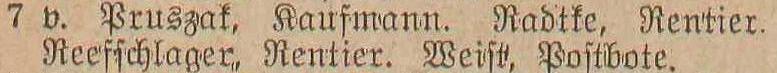 7 v. Pruszak, Kaufmann. Radtke, Rentier.
Reefschlager, Rentier. Weist, Postbote.